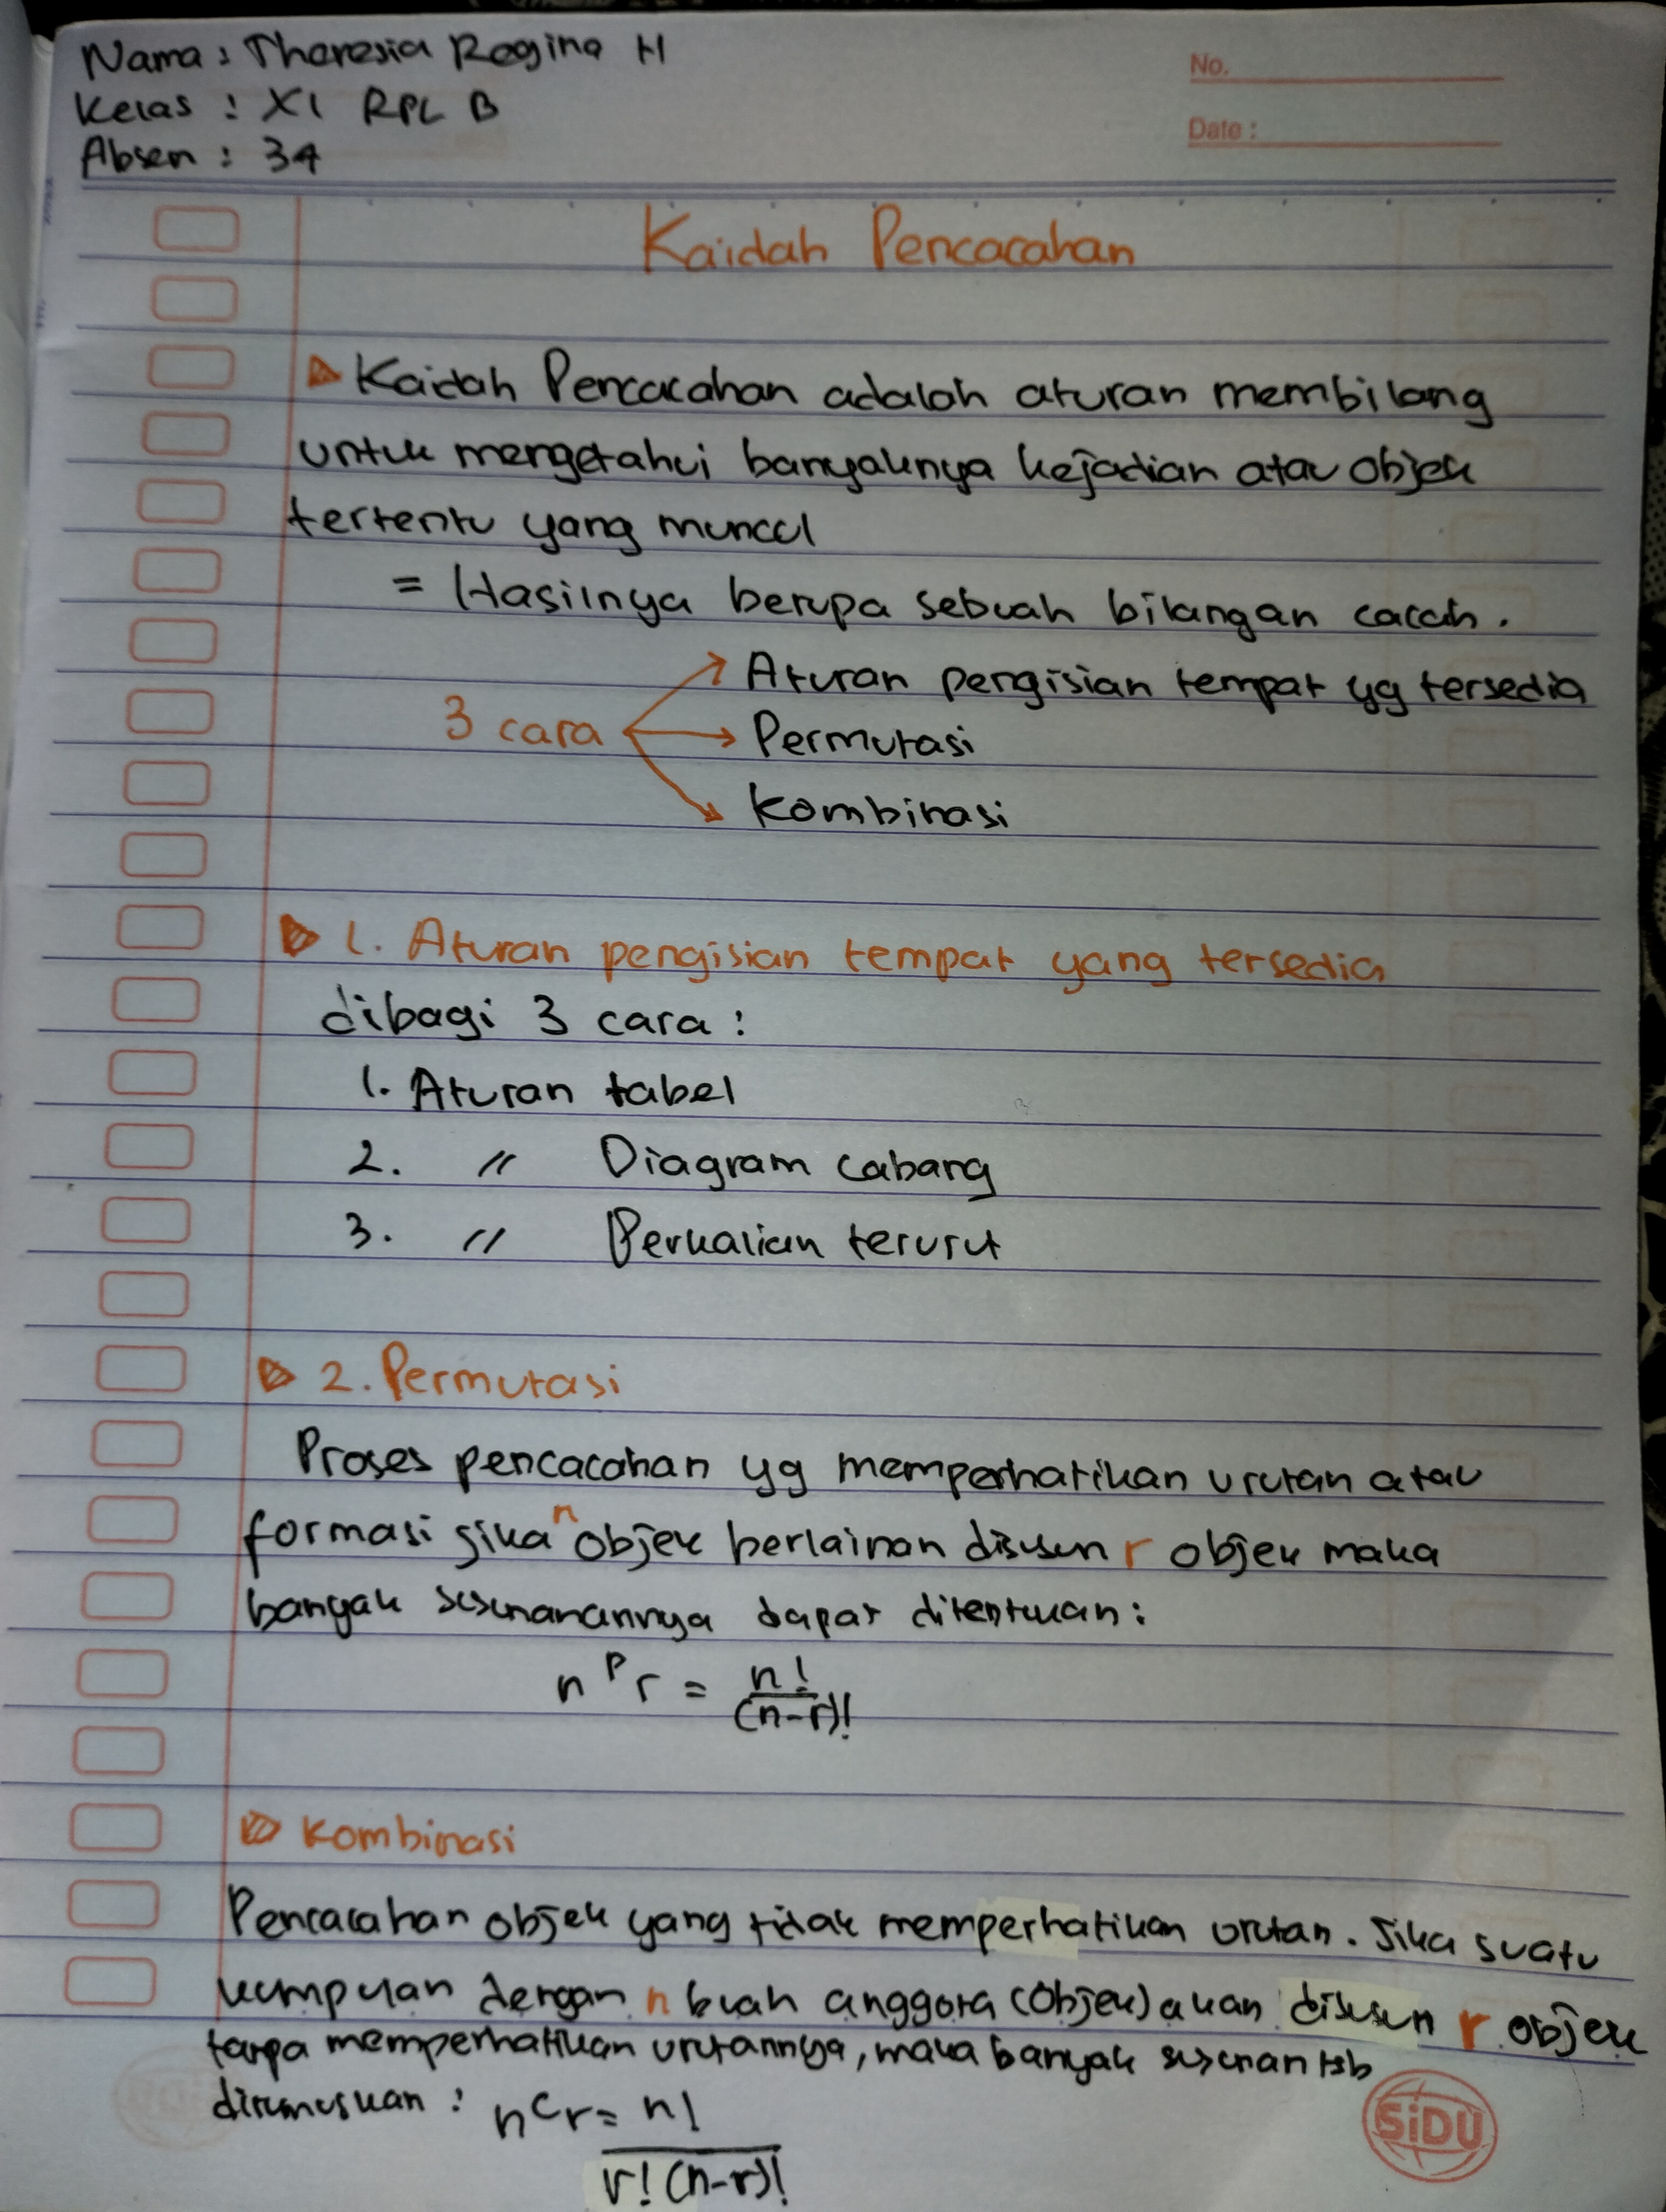 Nama : Theresia Regina H
Kelas : XI RPL B
Absen : 34
No.
Date :
Kaidah Pencacahan
Kaidah Pencacahan adalah aturan membilang
untuk mengetahui banyaknya kejadian atau objek
tertentu yang muncul
= Hasilnya berupa sebuah bilangan cacah.
3 cara → Aturan pengisian tempat yg tersedia
→ Permutasi
→ Kombinasi
1. Aturan pengisian tempat yang tersedia
dibagi 3 cara :
1. Aturan tabel
2. " Diagram cabang
3. " Perkalian terurut
2. Permutasi
Proses pencacahan yg memperhatikan urutan atau
formasi jika n objek berlainan disusun r objek maka
banyak susunanannya dapat ditentukan :
n P r = n! / (n-r)!
Kombinasi
Pencacahan objek yang tidak memperhatikan urutan. Jika suatu
kumpulan dengan n buah anggota (objek) akan disusun r objek
tanpa memperhatikan urutannya, maka banyak susunan tsb
dirumuskan : n C r = n! / r! (n-r)!
SiDU